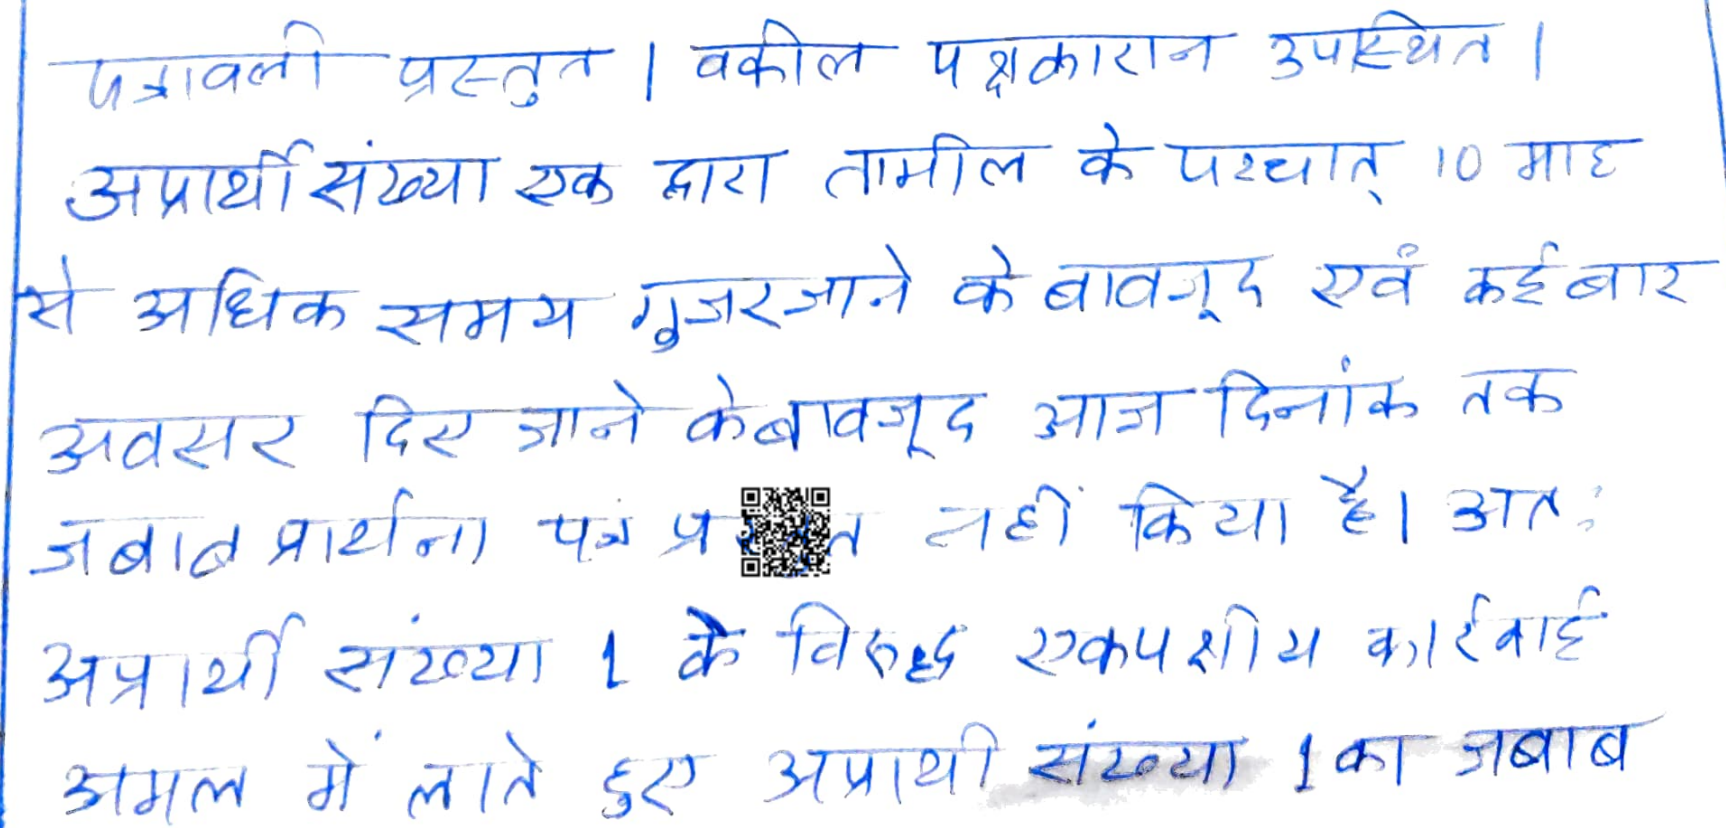 पत्रावली प्रस्तुत । वकील पक्षकारान उपस्थित ।
अप्रार्थी संख्या एक द्वारा तामील के पश्चात् 10 माह
से अधिक समय गुजर जाने के बावजूद एवं कई बार
अवसर दिए जाने के बावजूद आज दिनांक तक
जबाब प्रार्थना पत्र नहीं किया है। अतः
अप्रार्थी संख्या 1 के विरुद्ध एकपक्षीय कार्रवाई
अमल में लाते हुए अप्रार्थी संख्या 1 का जबाब